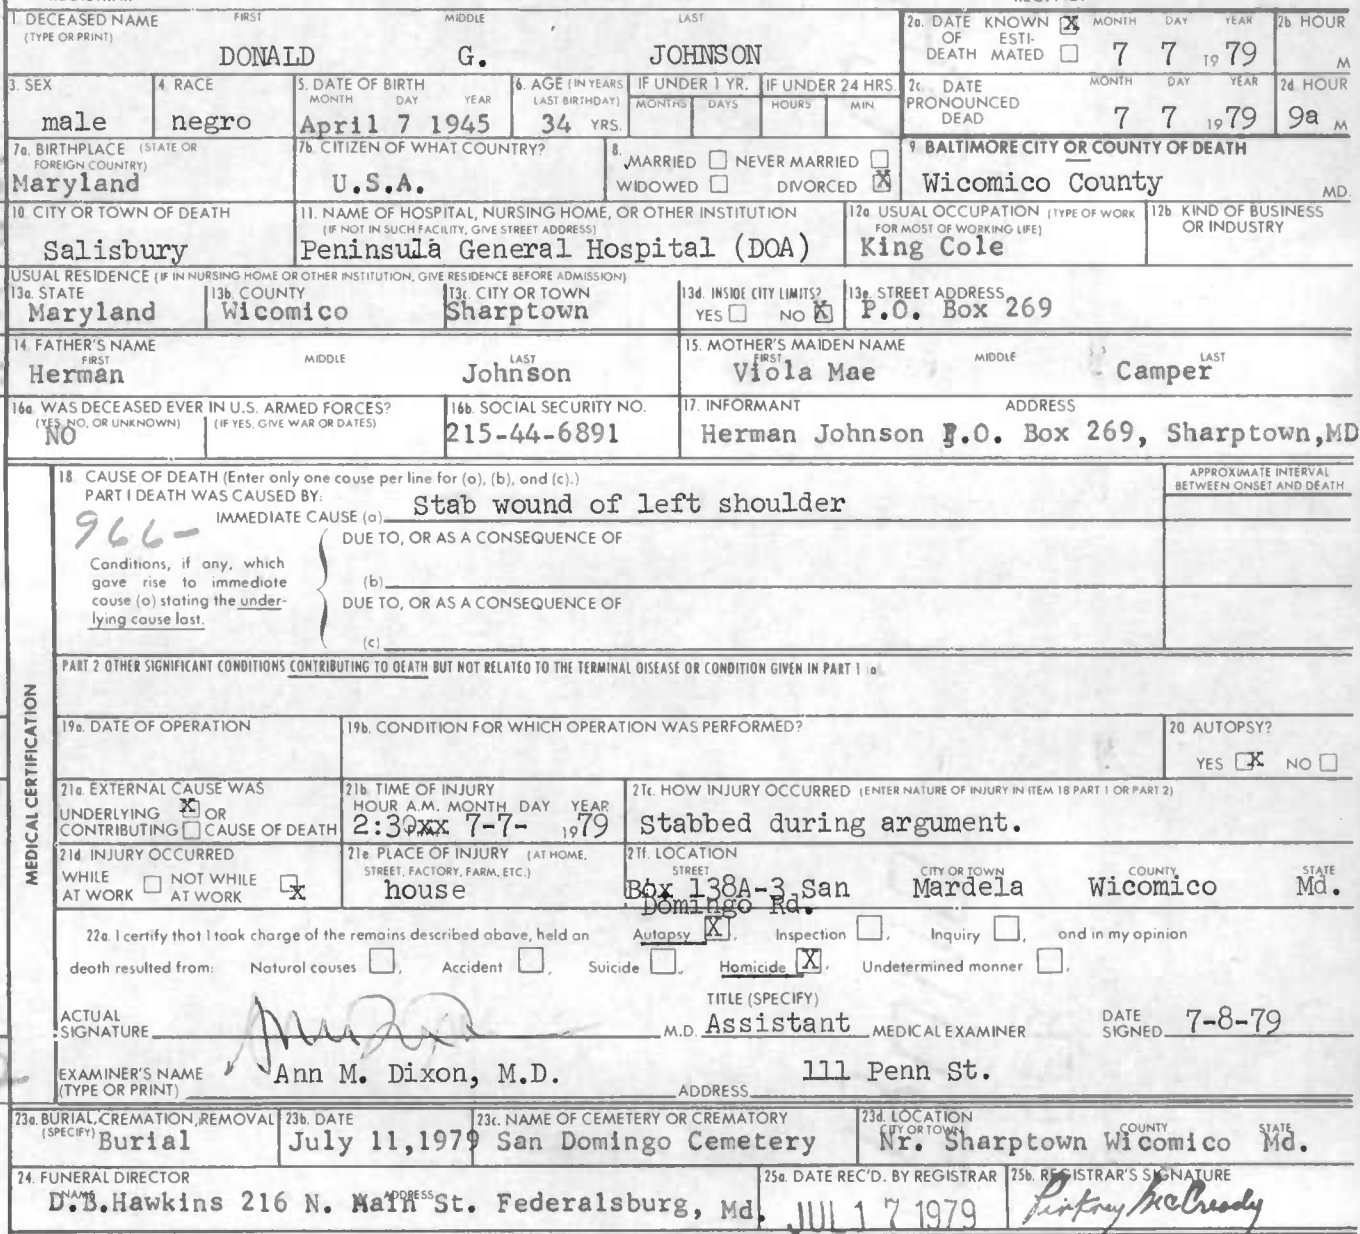 1. DECEASED NAME FIRST MIDDLE LAST
(TYPE OR PRINT)
DONALD G. JOHNSON
2a. DATE KNOWN X MONTH DAY YEAR
OF ESTI-
DEATH MATED 7 7 1979
2b. HOUR
M
3. SEX
male
4. RACE
negro
5. DATE OF BIRTH
MONTH DAY YEAR
April 7 1945
6. AGE (IN YEARS
LAST BIRTHDAY)
34 YRS.
IF UNDER 1 YR.
MONTHS DAYS
IF UNDER 24 HRS.
HOURS MIN
2c. DATE MONTH DAY YEAR
PRONOUNCED
DEAD 7 7 1979
2d. HOUR
9a M
7a. BIRTHPLACE (STATE OR
FOREIGN COUNTRY)
Maryland
7b. CITIZEN OF WHAT COUNTRY?
U.S.A.
8.
MARRIED NEVER MARRIED
WIDOWED DIVORCED X
9. BALTIMORE CITY OR COUNTY OF DEATH
Wicomico County MD.
10. CITY OR TOWN OF DEATH
Salisbury
11. NAME OF HOSPITAL, NURSING HOME, OR OTHER INSTITUTION
(IF NOT IN SUCH FACILITY, GIVE STREET ADDRESS)
Peninsula General Hospital (DOA)
12a. USUAL OCCUPATION (TYPE OF WORK
FOR MOST OF WORKING LIFE)
King Cole
12b. KIND OF BUSINESS
OR INDUSTRY
USUAL RESIDENCE (IF IN NURSING HOME OR OTHER INSTITUTION, GIVE RESIDENCE BEFORE ADMISSION)
13a. STATE
Maryland
13b. COUNTY
Wicomico
13c. CITY OR TOWN
Sharptown
13d. INSIDE CITY LIMITS?
YES NO X
13e. STREET ADDRESS
P.O. Box 269
14. FATHER'S NAME
FIRST MIDDLE LAST
Herman Johnson
15. MOTHER'S MAIDEN NAME
FIRST MIDDLE LAST
Viola Mae Camper
16a. WAS DECEASED EVER IN U.S. ARMED FORCES?
(YES, NO, OR UNKNOWN) (IF YES, GIVE WAR OR DATES)
NO
16b. SOCIAL SECURITY NO.
215-44-6891
17. INFORMANT ADDRESS
Herman Johnson P.O. Box 269, Sharptown,MD
MEDICAL CERTIFICATION
18. CAUSE OF DEATH (Enter only one cause per line for (a), (b), and (c).)
PART I DEATH WAS CAUSED BY:
IMMEDIATE CAUSE (a) Stab wound of left shoulder
APPROXIMATE INTERVAL
BETWEEN ONSET AND DEATH
966-
DUE TO, OR AS A CONSEQUENCE OF
Conditions, if any, which
gave rise to immediate
cause (a) stating the under-
lying cause last.
(b)
DUE TO, OR AS A CONSEQUENCE OF
(c)
PART 2 OTHER SIGNIFICANT CONDITIONS CONTRIBUTING TO DEATH BUT NOT RELATED TO THE TERMINAL DISEASE OR CONDITION GIVEN IN PART 1 (a)
19a. DATE OF OPERATION
19b. CONDITION FOR WHICH OPERATION WAS PERFORMED?
20. AUTOPSY?
YES X NO
21a. EXTERNAL CAUSE WAS
UNDERLYING X OR
CONTRIBUTING CAUSE OF DEATH
21b. TIME OF INJURY
HOUR A.M. MONTH DAY YEAR
2:30xx 7-7- 1979
21c. HOW INJURY OCCURRED (ENTER NATURE OF INJURY IN ITEM 18 PART 1 OR PART 2)
Stabbed during argument.
21d. INJURY OCCURRED
WHILE NOT WHILE
AT WORK AT WORK x
21e. PLACE OF INJURY (AT HOME,
STREET, FACTORY, FARM, ETC.)
house
21f. LOCATION
STREET CITY OR TOWN COUNTY STATE
Box 138A-3 San Mardela Wicomico Md.
Domingo Rd.
22a. I certify that I took charge of the remains described above, held an Autopsy X, Inspection , Inquiry , and in my opinion
death resulted from: Natural causes , Accident , Suicide , Homicide X, Undetermined manner .
ACTUAL
SIGNATURE M.D.
TITLE (SPECIFY)
Assistant MEDICAL EXAMINER
DATE
SIGNED 7-8-79
EXAMINER'S NAME
(TYPE OR PRINT) Ann M. Dixon, M.D.
ADDRESS 111 Penn St.
23a. BURIAL, CREMATION, REMOVAL
(SPECIFY) Burial
23b. DATE
July 11,1979
23c. NAME OF CEMETERY OR CREMATORY
San Domingo Cemetery
23d. LOCATION
CITY OR TOWN COUNTY STATE
Nr. Sharptown Wicomico Md.
24. FUNERAL DIRECTOR
NAME ADDRESS
D.B.Hawkins 216 N. Main St. Federalsburg, Md.
25a. DATE REC'D. BY REGISTRAR
JUL 17 1979
25b. REGISTRAR'S SIGNATURE
Pinkney McCready